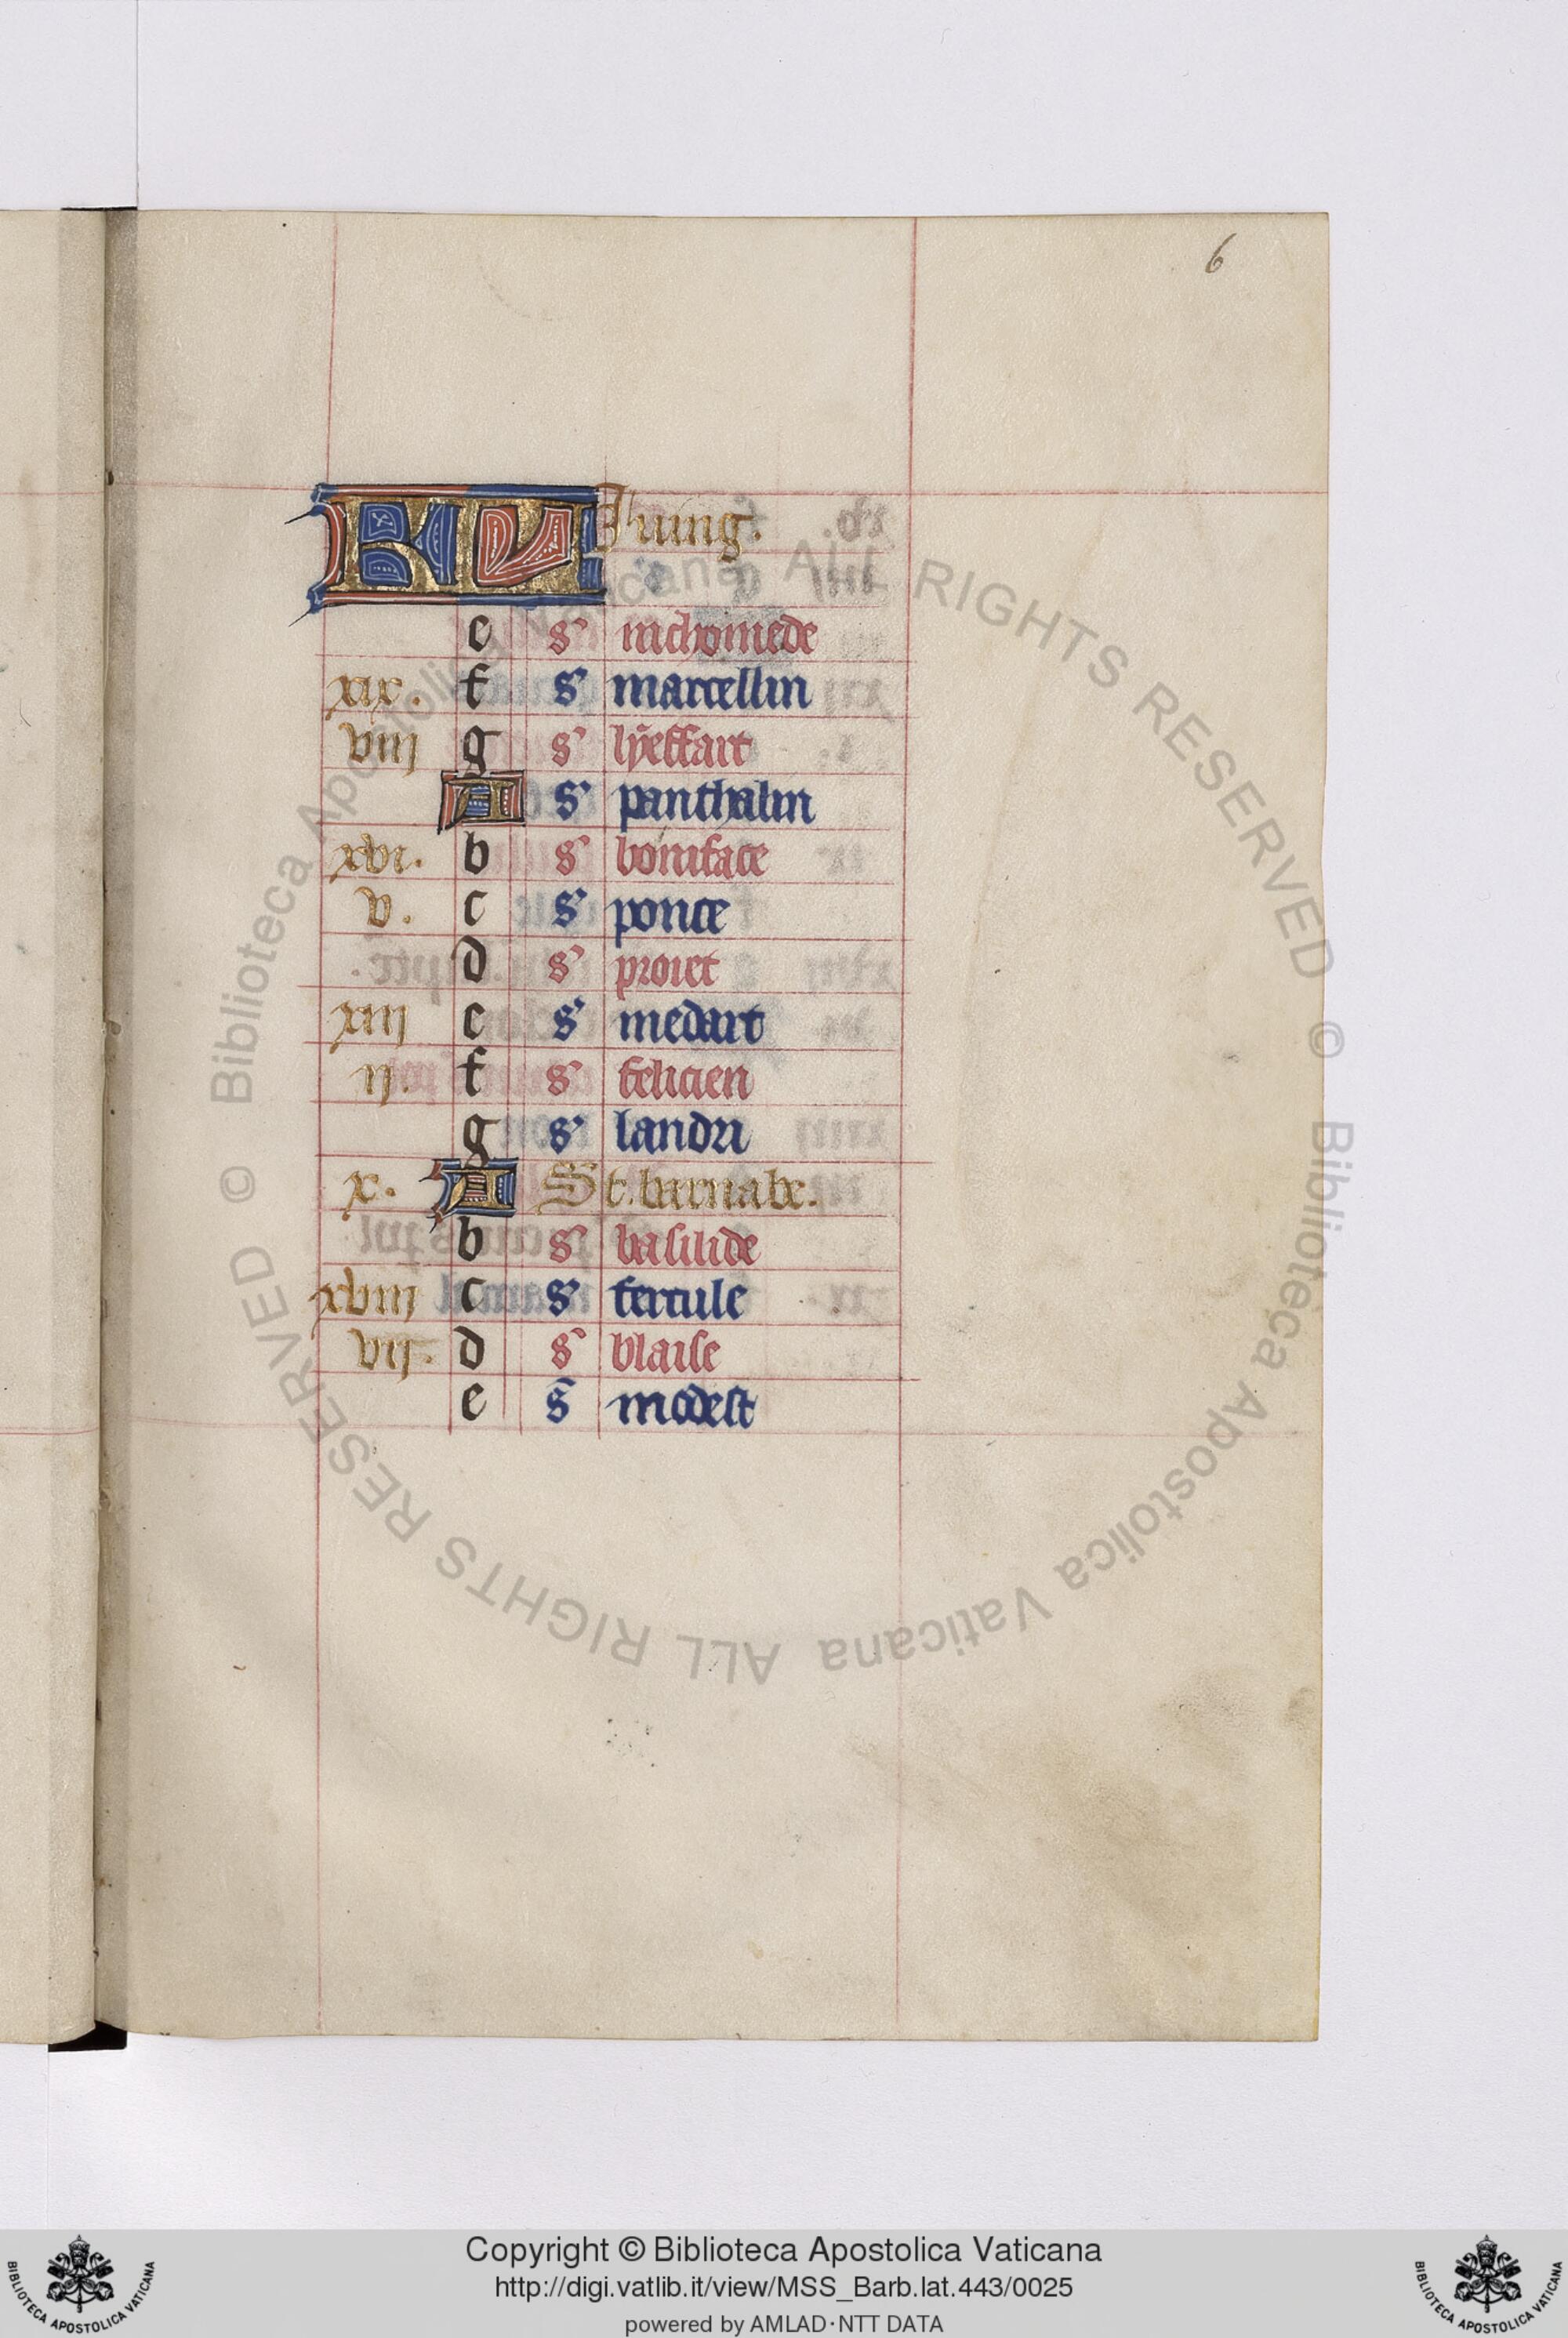 6
KL Juing.
e s' nichomede
xix. f s' marcellin
viii g s' lyeffart
A s' panthalin
xvi. b s' boniface
v. c s' ponce
d s' proiet
xiii e s' medart
ii. f s' felicien
g s' landri
x. A St. barnabe.
b s' basilide
xviii c s' fercule
vii. d s' blaise
e s̄ modest
© Biblioteca Apostolica Vaticana ALL RIGHTS RESERVED © Biblioteca Apostolica Vaticana ALL RIGHTS RESERVED
Copyright © Biblioteca Apostolica Vaticana
http://digi.vatlib.it/view/MSS_Barb.lat.443/0025
powered by AMLAD·NTT DATA
BIBLIOTECA APOSTOLICA VATICANA
BIBLIOTECA APOSTOLICA VATICANA